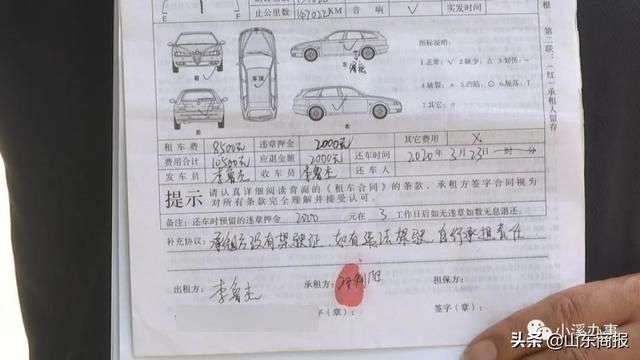 E F
止公里数 147022KM 音响 √ 实发时间
根
第二联：（红）承租人留存
前 车顶 左
后 右
图标说明：
1.正常：√ 2.缺少：△ 3.划伤：
4.破裂：× 5.凹陷：○ 6.脱落：T
7.其它：
租车费 8500元 违章押金 2000元 其它费用 X
费用合计 10500元 应退金额 2000元 还车时间 2020年3月23日 时 分
发车员 李鲁杰 收车员 李鲁杰 还车人
提示：请认真详细阅读背面的《租车合同》的条款，承租方签字合同视为
对所有条款完全理解并接受认可。
备注：还车时预留的违章押金 2000 元在 3 工作日后如无违章如数无息退还。
补充协议：承租方没有驾驶证，如有违法驾驶，自行承担责任
出租方：李鲁杰 承租方： 担保方：
签字（章）： 签字（章）：
小溪办事
头条 @山东商报